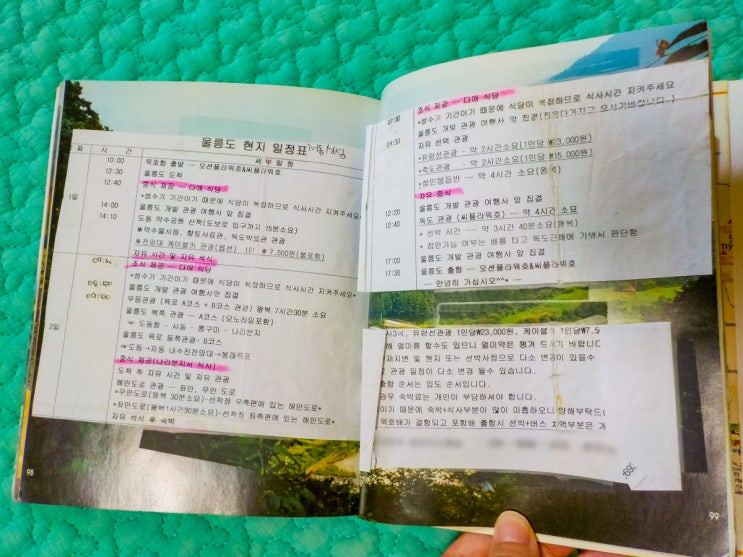 울릉도 현지 일정표
일 차
시 간
세 부 일 정
1일
10:00 묵호항 출발 - 오션플라워호&씨플라워호
12:30 울릉도 도착
12:40 중식 제공 -- 다애 식당
*성수기 기간이기 때문에 식당이 복잡하므로 식사시간 지켜주세요
14:00 울릉도 개발 관광 여행사 앞 집결
14:10 도동 약수공원 산책(도보로 입구까지 15분소요)
※약수물시음, 향토사료관, 독도박물관 관광
※전망대 케이블카 관광(옵션) 1인 ₩ 7,500원(불포함)
자유 시간 및 자유 석식
2일
조식 제공 -- 다애 식당
*성수기 기간이기 때문에 식당이 복잡하므로 식사시간 지켜주세요*
08:50 울릉도 개발 관광 여행사앞 집결
09:00 우등관광 (육로 A코스 + B코스 관광) 왕복 7시간30분 소요
울릉도 북쪽 관광 - A코스 (모노레일포함)
☞ 도동항 - 사동 - 통구미 - 나리분지
울릉도 육로 동쪽관광 - B코스
☞도동→저동 내수전전망대→봉래폭포
중식 제공(나리분지서 식사)
도착 후 자유 시간 및 자유 관광
해안도로 관광 - 좌안, 우안 도로
*우안도로(왕복 30분소요)-선착장 우측편에 있는 해안도로*
*좌안도로(왕복1시간30분소요)-선착장 좌측편에 있는 해안도로*
자유 석식 후 숙박
98
07:30 조식 제공 -- 다애 식당
*성수기 기간이기 때문에 식당이 복잡하므로 식사시간 지켜주세요
09:30 울릉도 개발 관광 여행사 앞 집결
자유 선택 관광
*유람선관광 - 약 2시간소요(1인당 ₩23,000원)
*죽도관광 - 약 2시간소요(1인당 ₩15,000원)
*성인봉등반 - 약 4시간 소요(왕복)
자유 중식
12:20 울릉도 개발 관광 여행사 앞 집결
12:40 독도 관광 (씨플라워호) -- 약 4시간 소요
* 선박 시간 -- 약 3시간 40분소요(왕복)
* 접안가능 여부는 배를 타고 독도근해에 가봐서 판단함
17:00 울릉도 개발 관광 여행사 앞 집결
17:30 울릉도 출항 - 오션플라워호&씨플라워호
-- 안녕히 가십시오^^* --
유람선관광 1인당₩23,000원, 케이블카 1인당₩7,5
해 멀미를 할수도 있으니 멀미약은 챙겨 드시기 바랍니다
재지변 및 현지 또는 선박사정으로 다소 변경이 있을수
관광 일정이 다소 변경 될수 있습니다.
출항 순서는 입도 순서입니다.
경우 숙박료는 개인이 부담하셔야 합니다.
이기 때문에 숙박+식사부분이 많이 미흡하오니 양해부탁드
묵호배가 결항되고 포항배 출항시 선박+버스 차액부분은 개
99